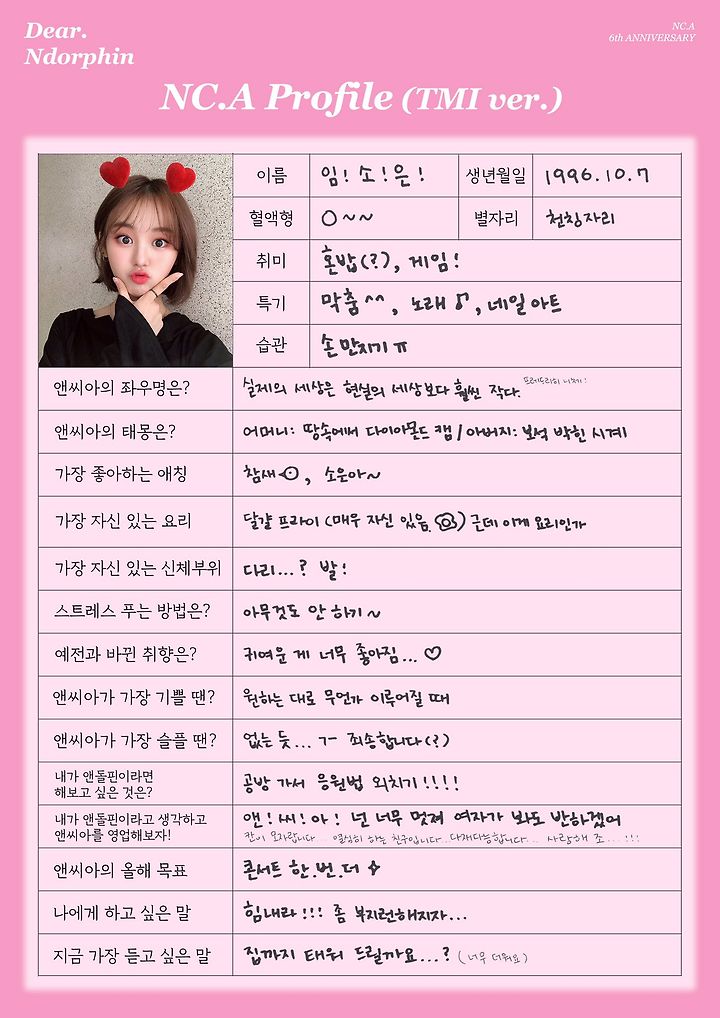 Dear.
Ndorphin
NC.A
6th ANNIVERSARY
NC.A Profile (TMI ver.)
이름 임! 소! 은! 생년월일 1996.10.7
혈액형 O~~ 별자리 천칭자리
취미 혼밥(?), 게임!
특기 막춤^^, 노래♪, 네일아트
습관 손 만지기 ㅠ
앤씨아의 좌우명은? 실제의 세상은 현실의 세상보다 훨씬 작다. 프레드리히 니체!
앤씨아의 태몽은? 어머니: 땅속에서 다이아몬드 캠 / 아버지: 보석 박힌 시계
가장 좋아하는 애칭 참새, 소은아~
가장 자신 있는 요리 달걀 프라이 (매우 자신 있음.) 근데 이게 요리인가
가장 자신 있는 신체부위 다리...? 발!
스트레스 푸는 방법은? 아무것도 안 하기~
예전과 바뀐 취향은? 귀여운 게 너무 좋아짐...♡
앤씨아가 가장 기쁠 땐? 원하는 대로 무언가 이루어질 때
앤씨아가 가장 슬플 땐? 없는 듯... ㄱ- 죄송합니다(?)
내가 앤돌핀이라면
해보고 싶은 것은? 공방 가서 응원법 외치기!!!!
내가 앤돌핀이라고 생각하고
앤씨아를 영업해보자! 앤! 씨! 아! 넌 너무 멋져 여자가 봐도 반하겠어
칸이 모자랍니다... 열심히 하는 친구입니다...다재다능합니다... 사랑해 죠...!!!
앤씨아의 올해 목표 콘서트 한.번.더 ✦
나에게 하고 싶은 말 힘내라!!! 좀 부지런해지자...
지금 가장 듣고 싶은 말 집까지 태워 드릴까요...? (너무 더워요)